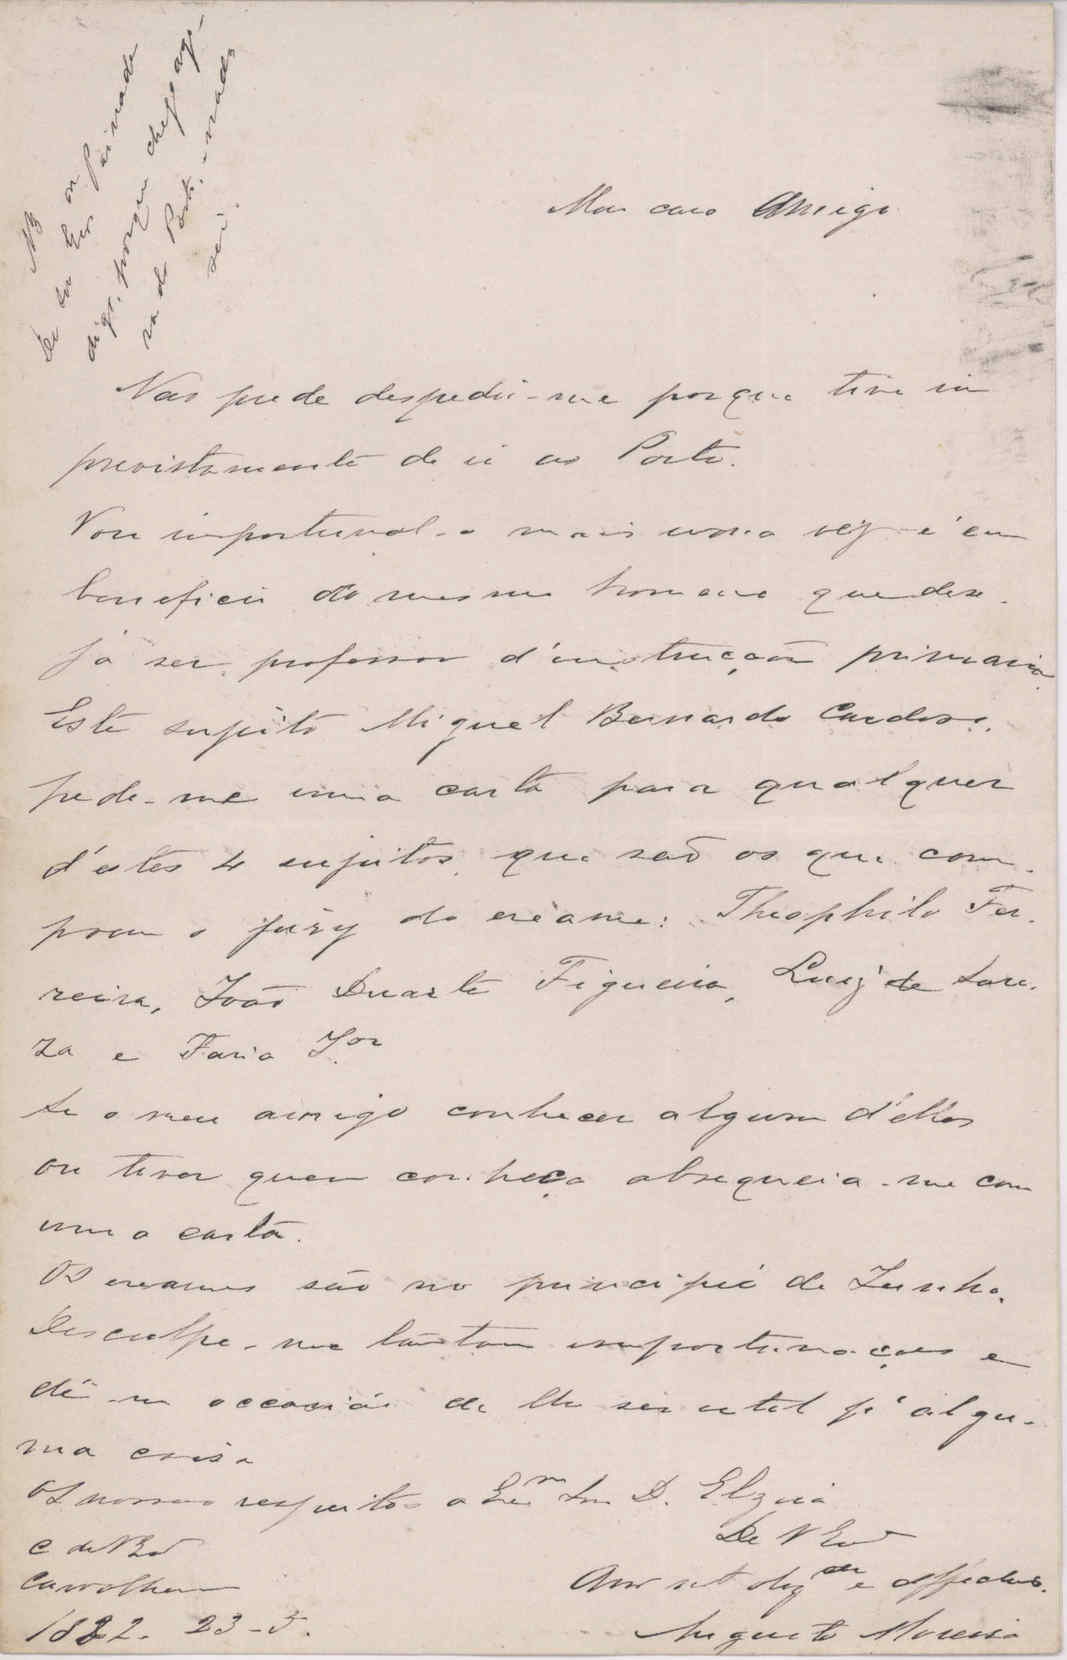 Meu caro Amigo
Não pude despedir-me porque tive im
previstamente de ir ao Porto.
Vou importunal-o mais uma vez e é em
beneficio do mesmo homem que dese-
ja ser professor d'instrucção primaria.
Este sujeito Miguel Bernardo Cardoso,
pede-me uma carta para qualquer
d'estes 4 sujeitos, que são os que com-
põem o jury do exame: Theophilo Fer-
reira, João Duarte Figueira, Luiz de Sou-
za e Faria J.or
Se o meu amigo conhecer algum d'elles
ou tiver quem conheça obsequeia-me com
uma carta.
Os exames são no principio de Junho.
Desculpe-me tantas importunações e
dê-m occasião de lhe ser util p.a algu-
ma coisa
Os nossos respeitos a Ex.ma Snr.a D.
De V Ex.a
C de V Ex.a
Am.o att obg.do e affectuo.
Carvolhem
1882. 23-5.
Augusto Moreira
NB
digo, porque chego ago-
ra do Porto, e nada
sei.